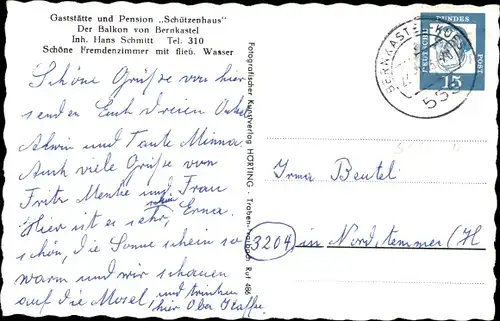 Gaststätte und Pension „Schützenhaus"
Der Balkon von Bernkastel
Inh. Hans Schmitt Tel. 310
Schöne Fremdenzimmer mit fließ. Wasser
Schöne Grüße von hier
senden Euch Onkel
Alwin und Tante Minna
Auch viele Grüße von
Fritz Menke und Frau
Erna.
Hier ist es sehr
schön, die Sonne schein so
warm und wir schauen
auf die Mosel, und trinken
hier
Fotografischer Kunstverlag HÖRTING - Traben-Trarbach Ruf 486
BERNKASTEL-KUES
555
DEUTSCHE BUNDES POST
15
Irma Beutel
3204 in Nordstemmen (H